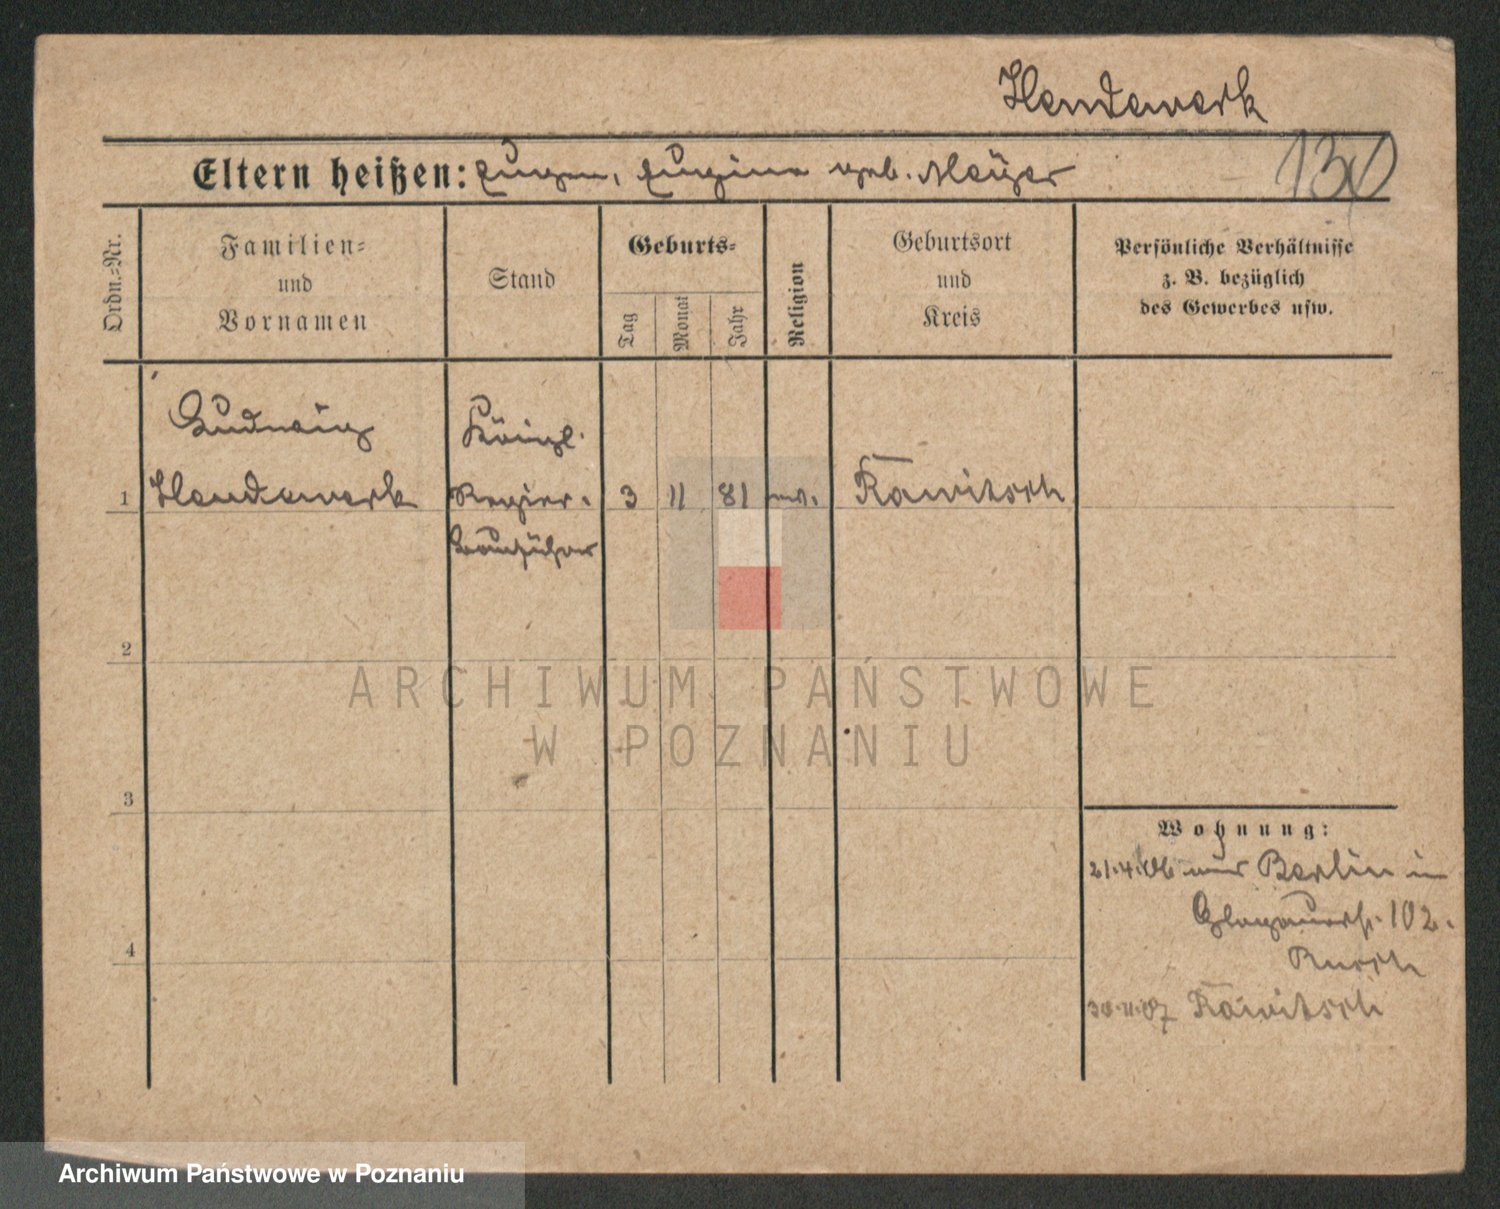 Hendewerk
130
Eltern heißen: Eugen, Eugine geb. Meÿer
Ordn.=Nr.
Familien=
und
Vornamen
Stand
Geburts=
Tag
Monat
Jahr
Religion
Geburtsort
und
Kreis
Persönliche Verhältnisse
z. B. bezüglich
des Gewerbes usw.
Ludwig Königl.
1 Hendewerk Regier. 3 11 81 Rawitsch
Bauführer
2
3
4
Wohnung:
21.4.06 aus Berlin in
Glogauerstr. 102.
30.11.07 Rawitsch
ARCHIWUM PAŃSTWOWE
W POZNANIU
Archiwum Państwowe w Poznaniu